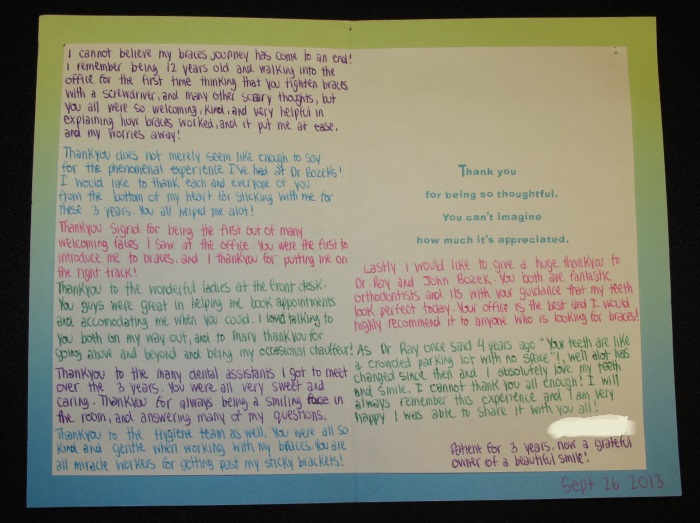 I cannot believe my braces journey has come to an end!
I remember being 12 years old and walking into the
office for the first time thinking that you tighten braces
with a screwdriver, and many other scary thoughts, but
you all were so welcoming, kind, and very helpful in
explaining how braces worked, and it put me at ease,
and my worries away!
Thankyou does not merely seem like enough to say
for the phenomenal experience I've had at Dr Bozeks!
I would like to thank each and everyone of you
from the bottom of my heart for sticking with me for
these 3 years. You all helped me alot!
Thankyou Sigrid for being the first out of many
welcoming faces I saw at the office. You were the first to
introduce me to braces, and I thankyou for putting me on
the right track!
Thankyou to the wonderful ladies at the front desk.
You guys were great in helping me book appointments
and accomodating me when you could. I loved talking to
you both on my way out, and to Mary thankyou for
going above and beyond and being my occasional chauffeur!
Thankyou to the many dental assistants I got to meet
over the 3 years. You were all very sweet and
caring. Thankyou for always being a smiling face in
the room, and answering many of my questions.
Thankyou to the Hygiene team as well. You were all so
kind and gentle when working with my braces. You are
all miracle workers for getting past my sticky brackets!
Thank you
for being so thoughtful.
You can't imagine
how much it's appreciated.
Lastly I would like to give a huge thankyou to
Dr Ray and John Bozek. You both are fantastic
orthodontists and its with your guidance that my teeth
look perfect today. Your office is the best and I would
highly recommend it to anyone who is looking for braces!
As Dr Ray once said 4 years ago "Your teeth are like
a crowded parking lot with no space", well alot has
changed since then and I absolutely love my teeth
and smile. I cannot thank you all enough! I will
always remember this experience and I am very
happy I was able to share it with you all!
Patient for 3 years, now a grateful
owner of a beautiful smile!
Sept 26 2013